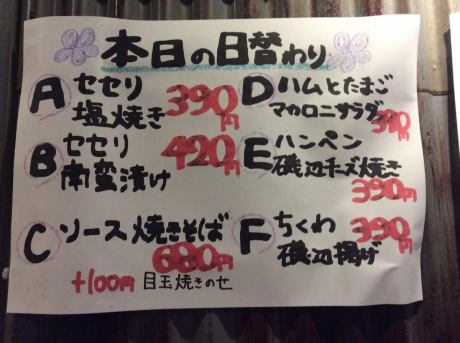 本日の日替わり
A セセリ
塩焼き 390円
B セセリ
南蛮漬け 420円
C ソース焼きそば
680円
+100円 目玉焼きのせ
D ハムとたまご
マカロニサラダ
390円
E ハンペン
磯辺チーズ焼き
390円
F ちくわ 390円
磯辺揚げ